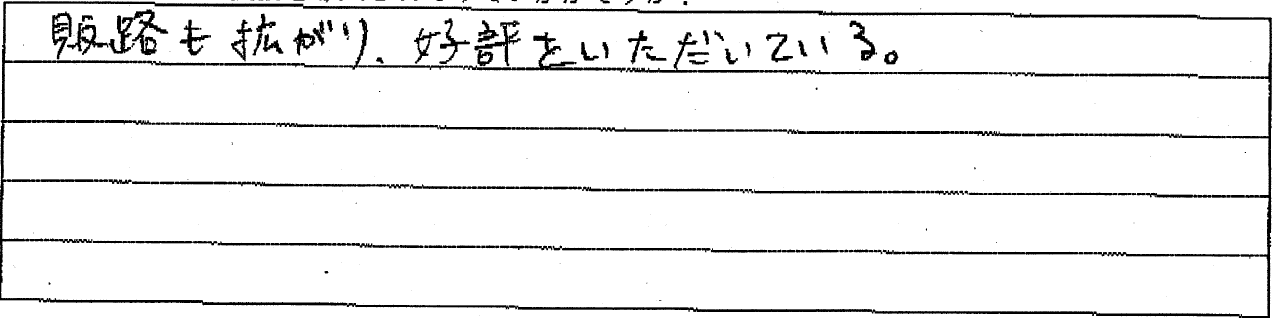 販路も拡がり、好評をいただいている。